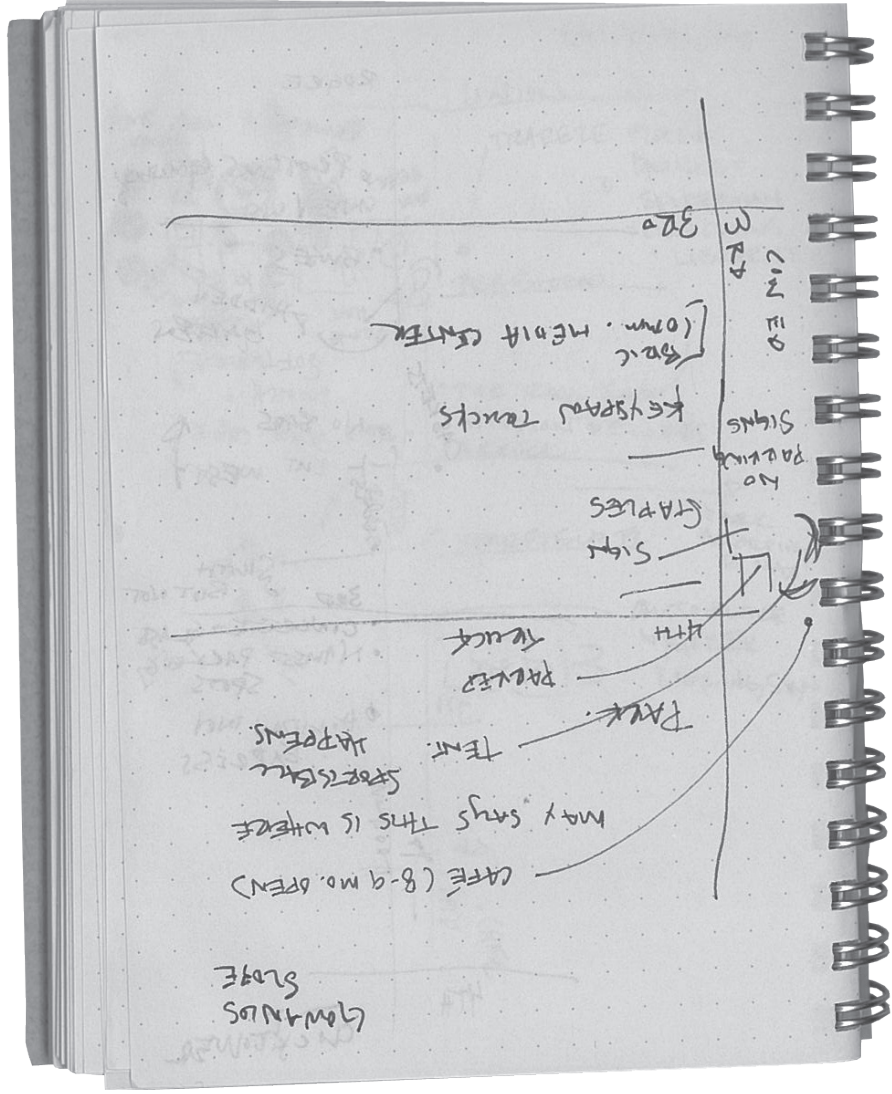 GOWANUS
SLOPE
CAFÉ (8-9 MO. OPEN)
MAX SAYS THIS IS WHERE
SPORTSBALL
HAPPENS.
TENT.
PARK.
PARKED
TRUCK
4TH
SIGN
STAPLES
NO
PARKING
SIGNS
KEYSPAN TRUCKS
BRIC
COMM. MEDIA CENTER
CON ED
3RD
3RD